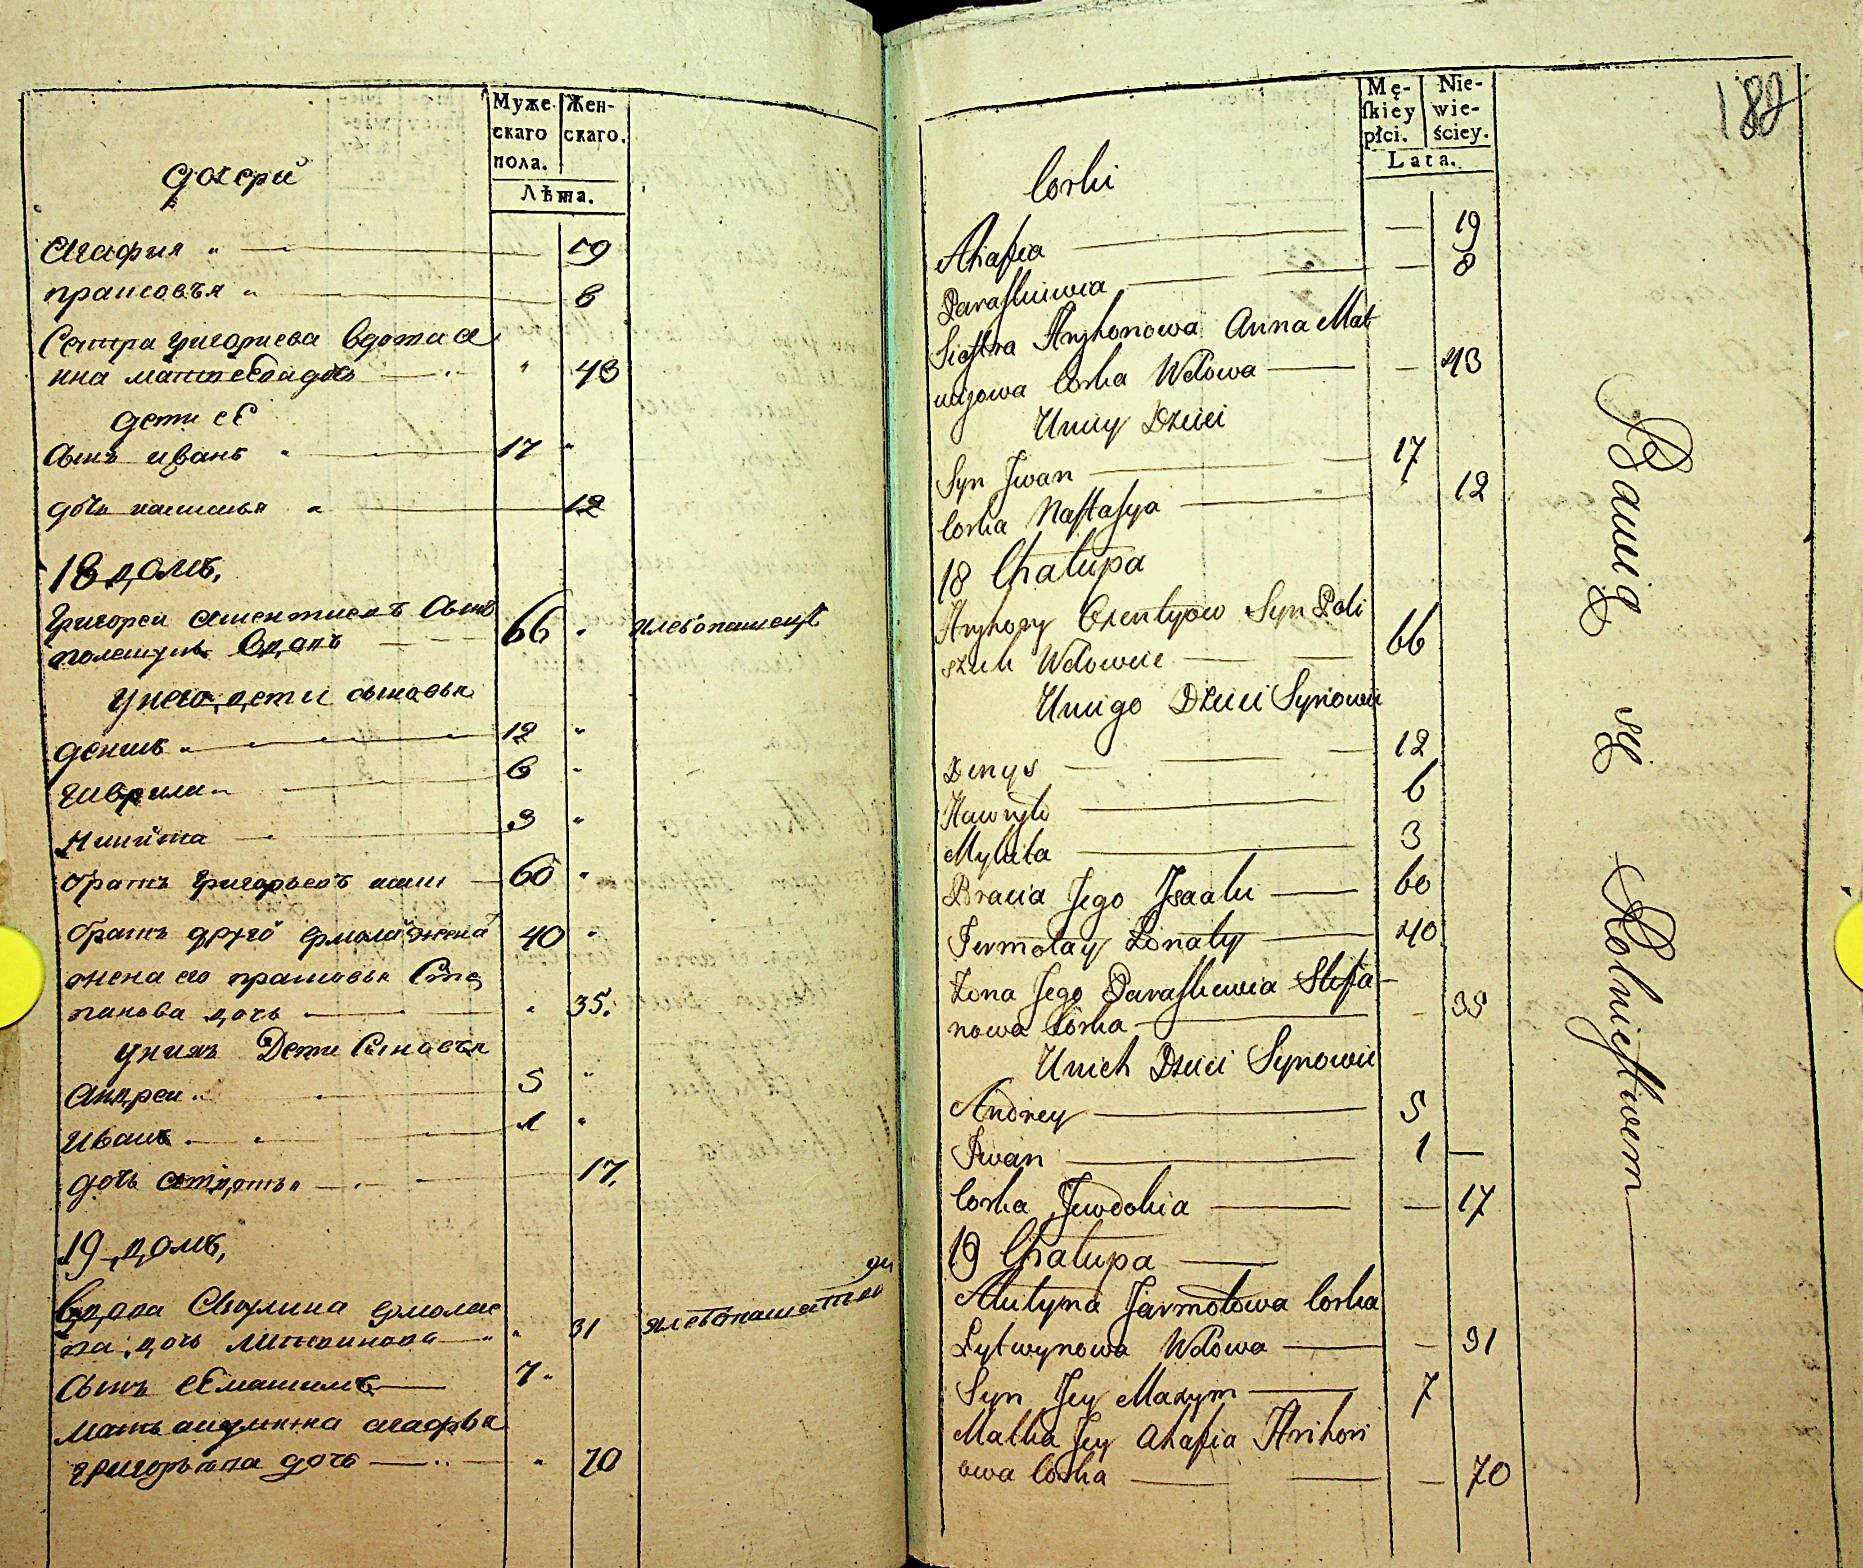 Муже-
скаго
пола.
Жен-
скаго.
Лѣта.
дочери
Агафия 19
прасковъя 8
Сестра григориева вдова а
нна матвеева дочь 43
дети её
Сынъ иванъ 17
дочь настасья 12
18 домъ,
Григореи Сынъ
полещукъ вдовъ 66 хлебопашецъ
у него дети сыновья
денисъ 12
гаврила 6
Никита 3
братъ григорьевъ 60
братъ друго ермолай женатъ 40
жена ево прасковья Сте
панова дочь 35.
у нихъ Дети Сыновья
Андреи 5
Иванъ 1
дочь 17.
19 домъ,
вдова Акулина ермолае
ва дочь литвинова 31
Сынъ её максимъ 7
мать акулинина агафья
григорьева дочь 70
188
Mę-
skiey
płci.
Nie-
wie-
ściey.
Lata.
Corki
Ahafia — 19
Paraskiewia — 8
Siostra Hryhorowa Anna Mat
wijowa Corka Wdowa — 43
Uniey Dzieci
Syn Iwan — 17
Corka Nastasya 12
18 Chałupa
Hryhory Syn Poli
szuk Wdowiec 66
Uniego Dzieci Synowie
Denys 12
Hawryło 6
Mykita 3
Bracia Jego Isaaki 60
Jermołay Żonaty 40
Żona Jego Paraskiewia Stefa-
nowa Corka — 35
Unich Dzieci Synowie
Andrey 5
Iwan 1 —
Corka Jewdokia — 17
19 Chałupa
Akulyna Jarmołowa Corka
Lytwynowa Wdowa — 31
Syn Jey Maxym 7
Matka Jey Ahafia Hrihori
owa Corka — 70
Bawią się Rolnictwem